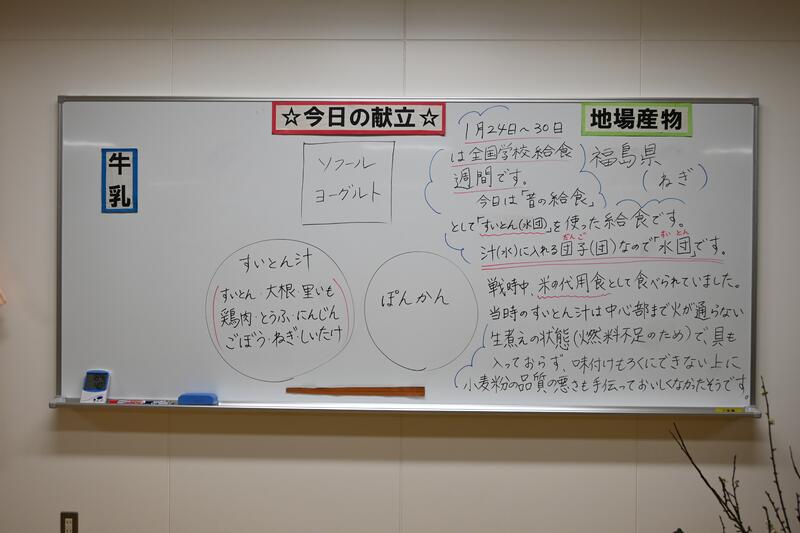 ☆今日の献立☆
地場産物
牛乳
ソフール
ヨーグルト
すいとん汁
すいとん・大根・里いも
鶏肉・とうふ・にんじん
ごぼう・ねぎ・しいたけ
ぽんかん
福島県
(ねぎ)
1月24日～30日
は全国学校給食
週間です。
今日は「昔の給食」
として「すいとん(水団)」を使った給食です。
だんご すい とん
汁(水)に入れる団子(団)なので「水団」です。
戦時中、米の代用食として食べられていました。
当時のすいとん汁は中心部まで火が通らない
生煮えの状態(燃料不足のため)で、具も
入っておらず、味付けもろくにできない上に
小麦粉の品質の悪さも手伝っておいしくなかったそうです。